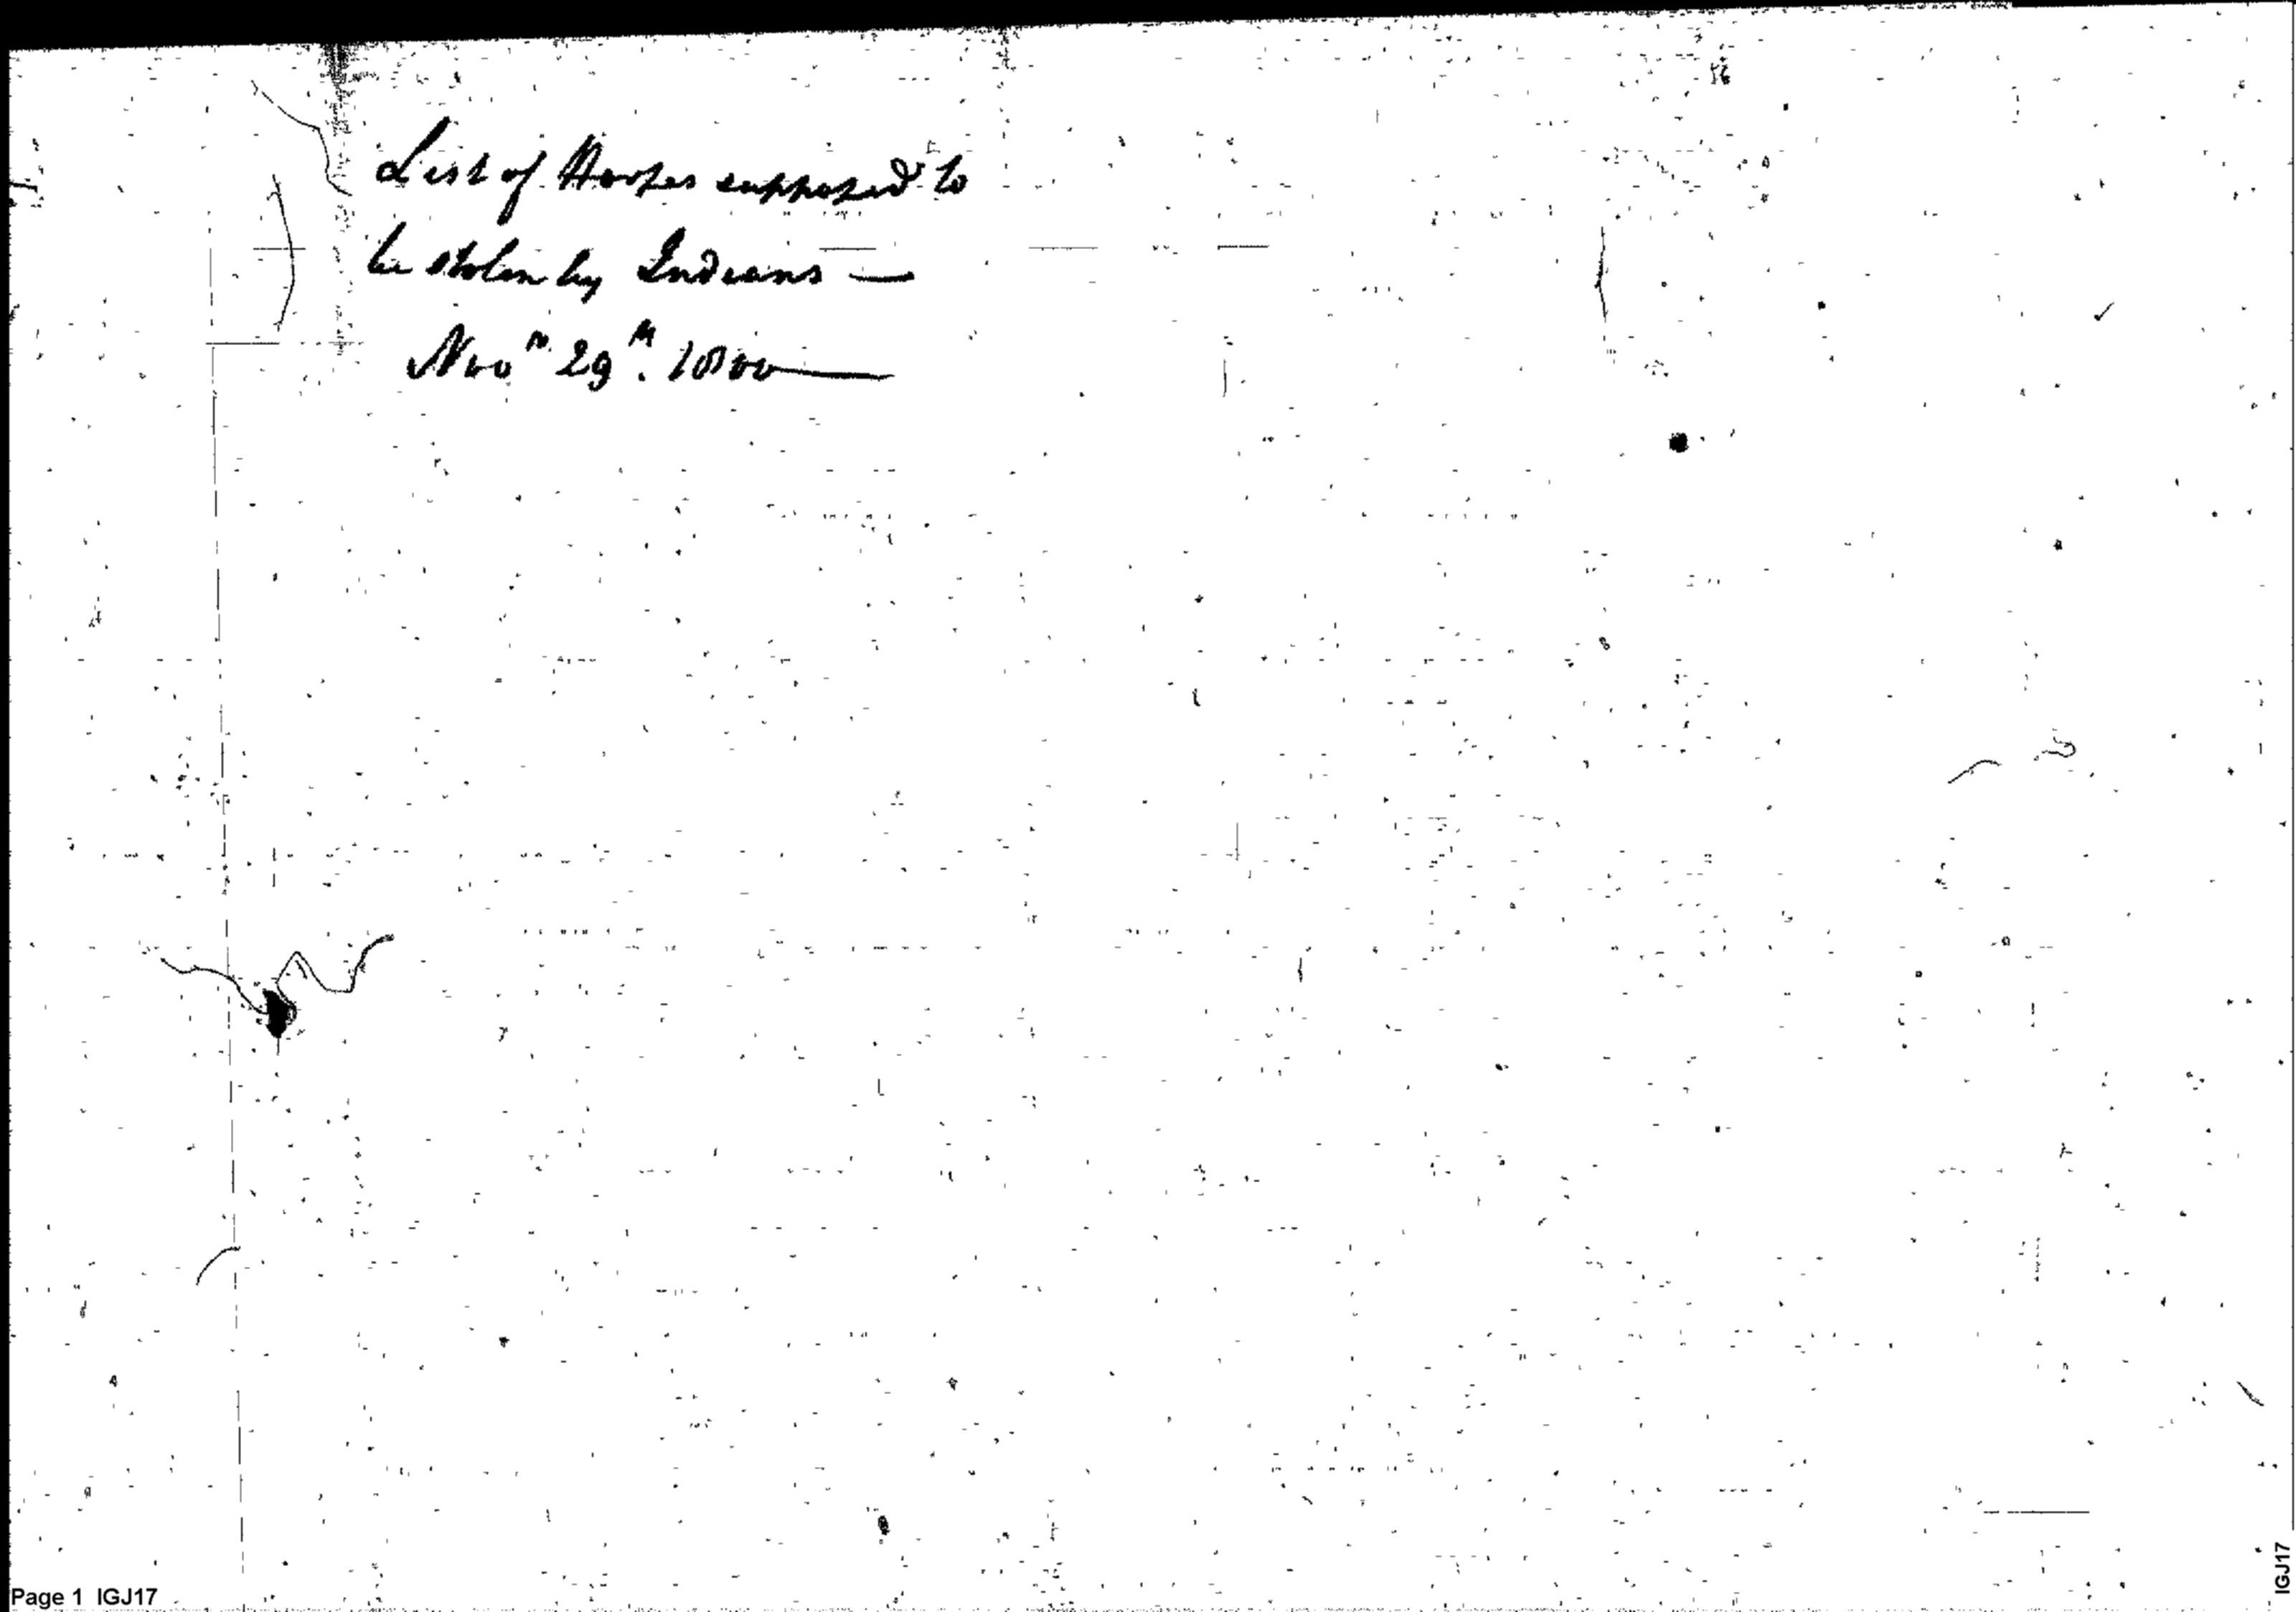 List of Horses supposed to
be stolen by Indians —
Novr. 29th. 1800
Page 1 IGJ17
IGJ17